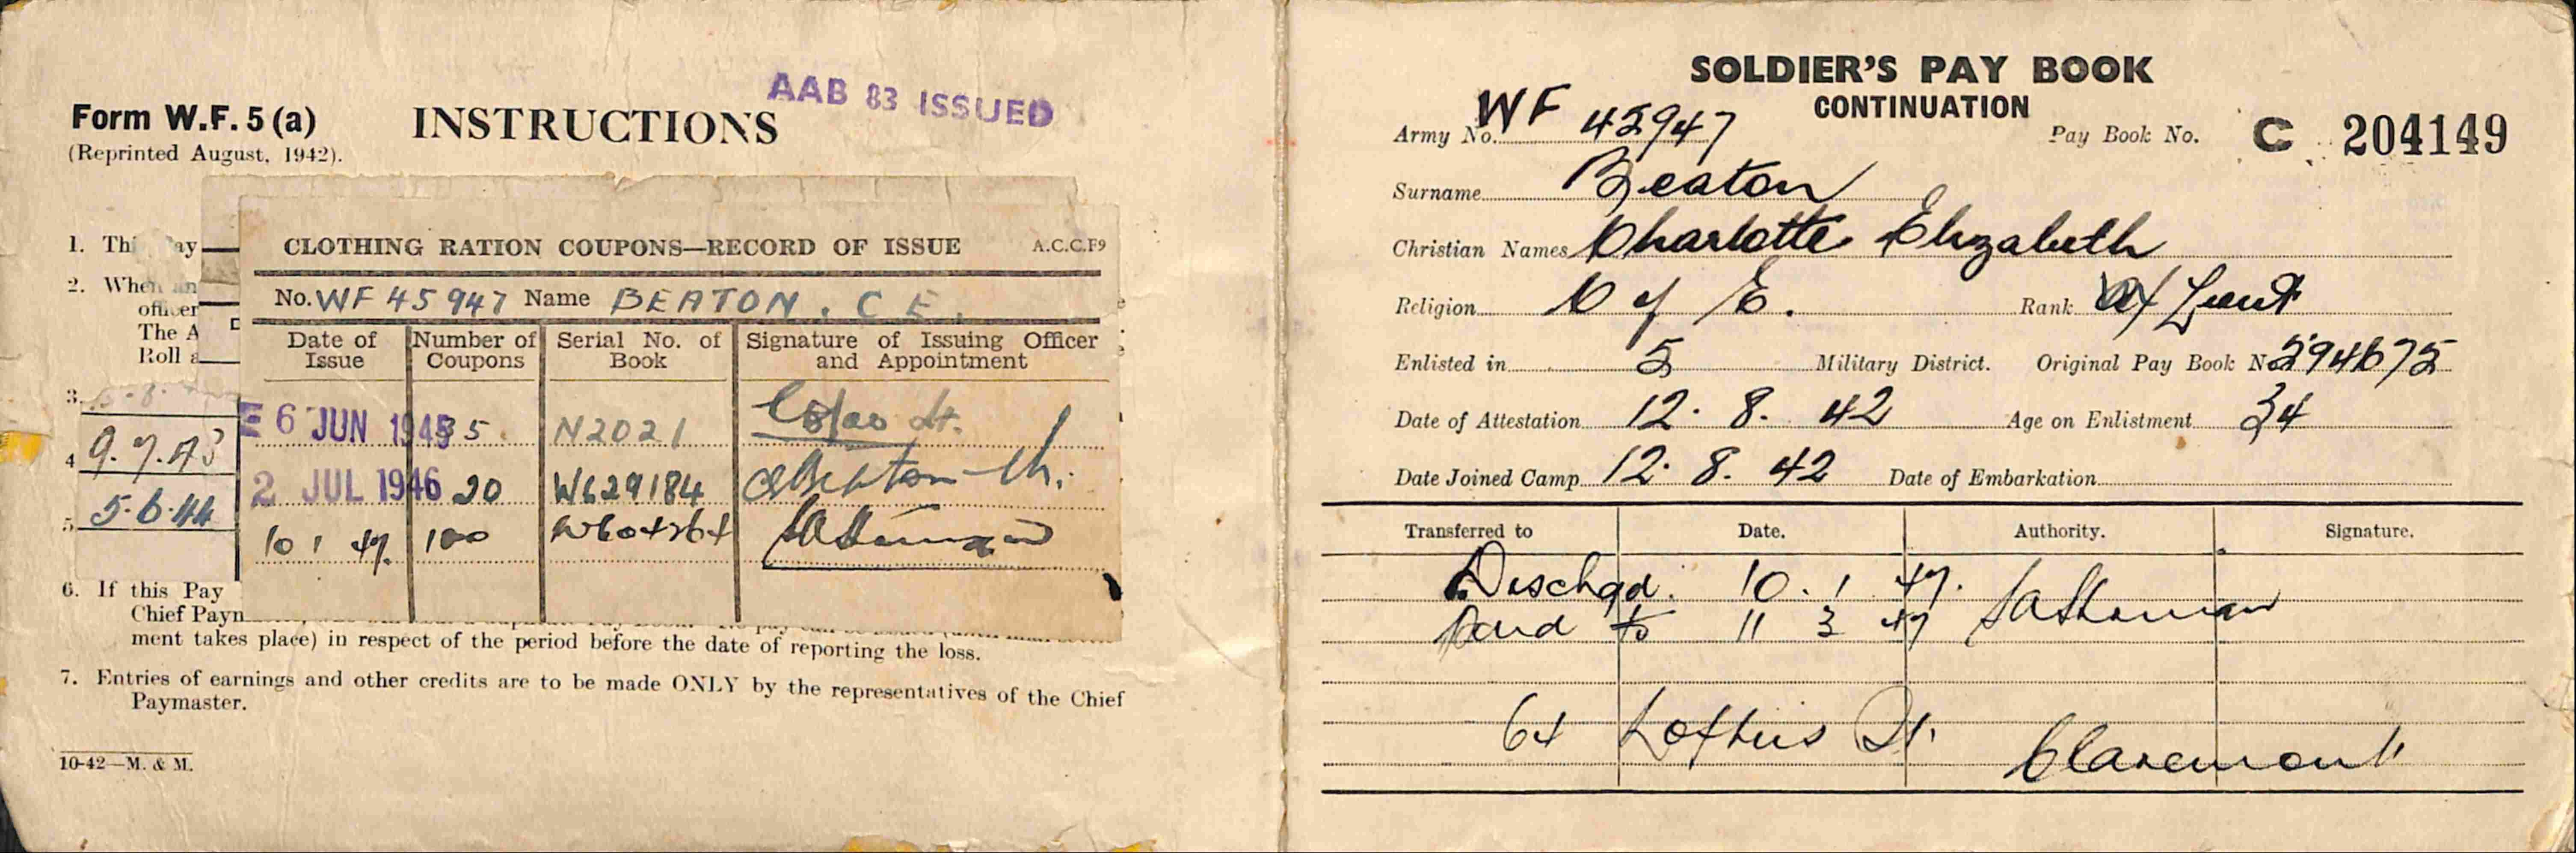 AAB 83 ISSUED
Form W.F. 5 (a) INSTRUCTIONS
(Reprinted August, 1942).
1. Thi ay
2. When an
officer
The A
Roll a
3.
9.7.43
4
5.6.44
5.
CLOTHING RATION COUPONS—RECORD OF ISSUE A.C.C.F9
No. WF 45947 Name BEATON. C E.
Date of Issue Number of Coupons Serial No. of Book Signature of Issuing Officer and Appointment
E 6 JUN 1945 35 N2021 Lt.
2 JUL 1946 20 W629184
10 1 47. 100
6. If this Pay
Chief Paym
ment takes place) in respect of the period before the date of reporting the loss.
7. Entries of earnings and other credits are to be made ONLY by the representatives of the Chief
Paymaster.
10-42—M. & M.
SOLDIER'S PAY BOOK
CONTINUATION
Army No. WF 45947 Pay Book No. C 204149
Surname Beaton
Christian Names Charlotte Elizabeth
Religion C of E. Rank Lieut
Enlisted in 5 Military District. Original Pay Book No 294675
Date of Attestation 12. 8. 42 Age on Enlistment 34
Date Joined Camp 12. 8. 42 Date of Embarkation
Transferred to Date. Authority. Signature.
Dischgd. 10. 1 47.
Paid to 11 3 47
64 Loftus St. Claremont